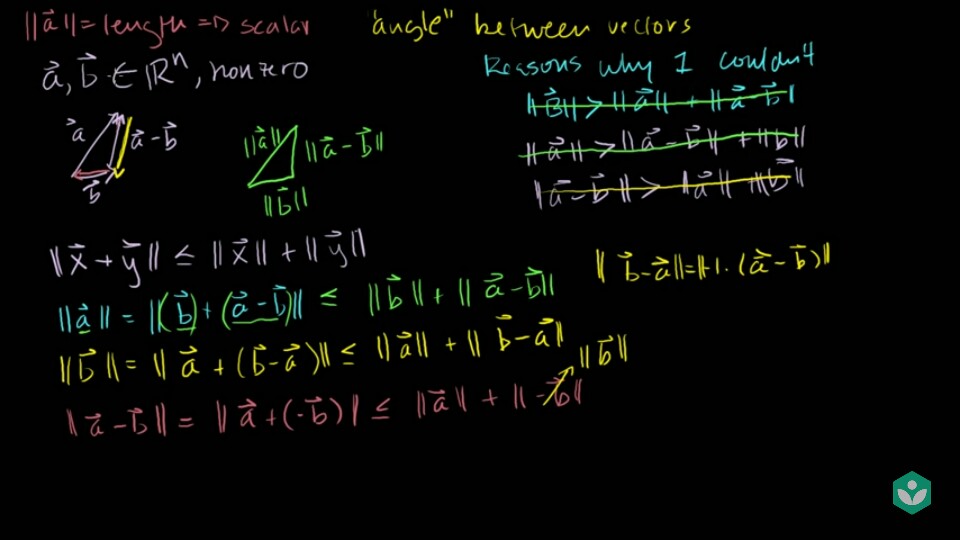 ||a⃗|| = length => scalar
"angle" between vectors
a⃗, b⃗ ∈ ℝⁿ, nonzero
Reasons why I couldn't
||b⃗|| > ||a⃗|| + ||a⃗ - b⃗||
||a⃗|| > ||a⃗ - b⃗|| + ||b⃗||
||a⃗ - b⃗|| > ||a⃗|| + ||b⃗||
a⃗
a⃗ - b⃗
b⃗
||a⃗||
||a⃗ - b⃗||
||b⃗||
||x⃗ + y⃗|| ≤ ||x⃗|| + ||y⃗||
||b⃗ - a⃗|| = ||-1 · (a⃗ - b⃗)||
||a⃗|| = ||(b⃗) + (a⃗ - b⃗)|| ≤ ||b⃗|| + ||a⃗ - b⃗||
||b⃗|| = ||a⃗ + (b⃗ - a⃗)|| ≤ ||a⃗|| + ||b⃗ - a⃗||
||b⃗||
||a⃗ - b⃗|| = ||a⃗ + (-b⃗)|| ≤ ||a⃗|| + ||-b⃗||